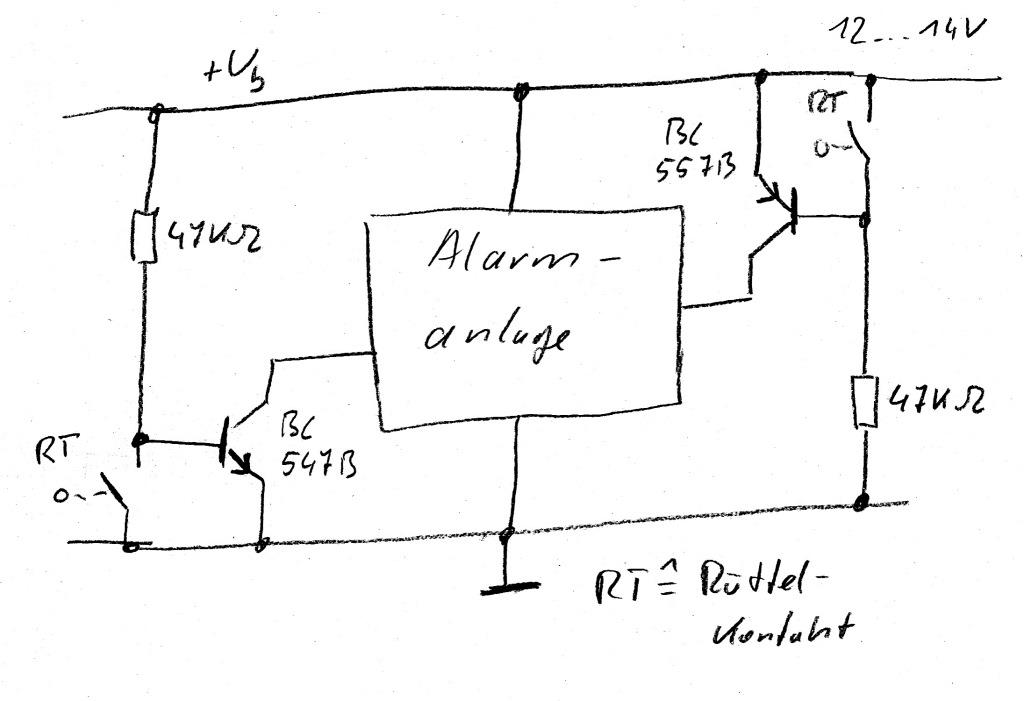 12...14V
+Ub
RT
BC
557B
47KΩ
Alarm-
anlage
47KΩ
BC
547B
RT
RT ≙ Rüttel-
Kontakt